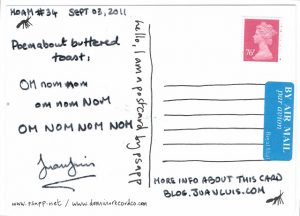 HOAM #34 SEPT 03, 2011
Poem about buttered
toast:
OM nom nom
om nom NOM
OM NOM NOM NOM
Juan Luis
www.psapp.net / www.dominorecordco.com
hello, I am a postcard by psapp
76p
BY AIR MAIL
par avion
Royal Mail
MORE INFO ABOUT THIS CARD
BLOG.JUANLUIS.COM